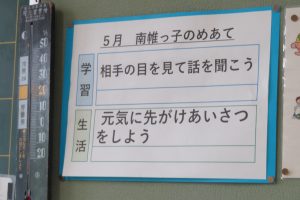 5月 南帷っ子のめあて
学習
相手の目を見て話を聞こう
生活
元気に先がけあいさつ
をしよう
50
40
30
20
10
0
10
20